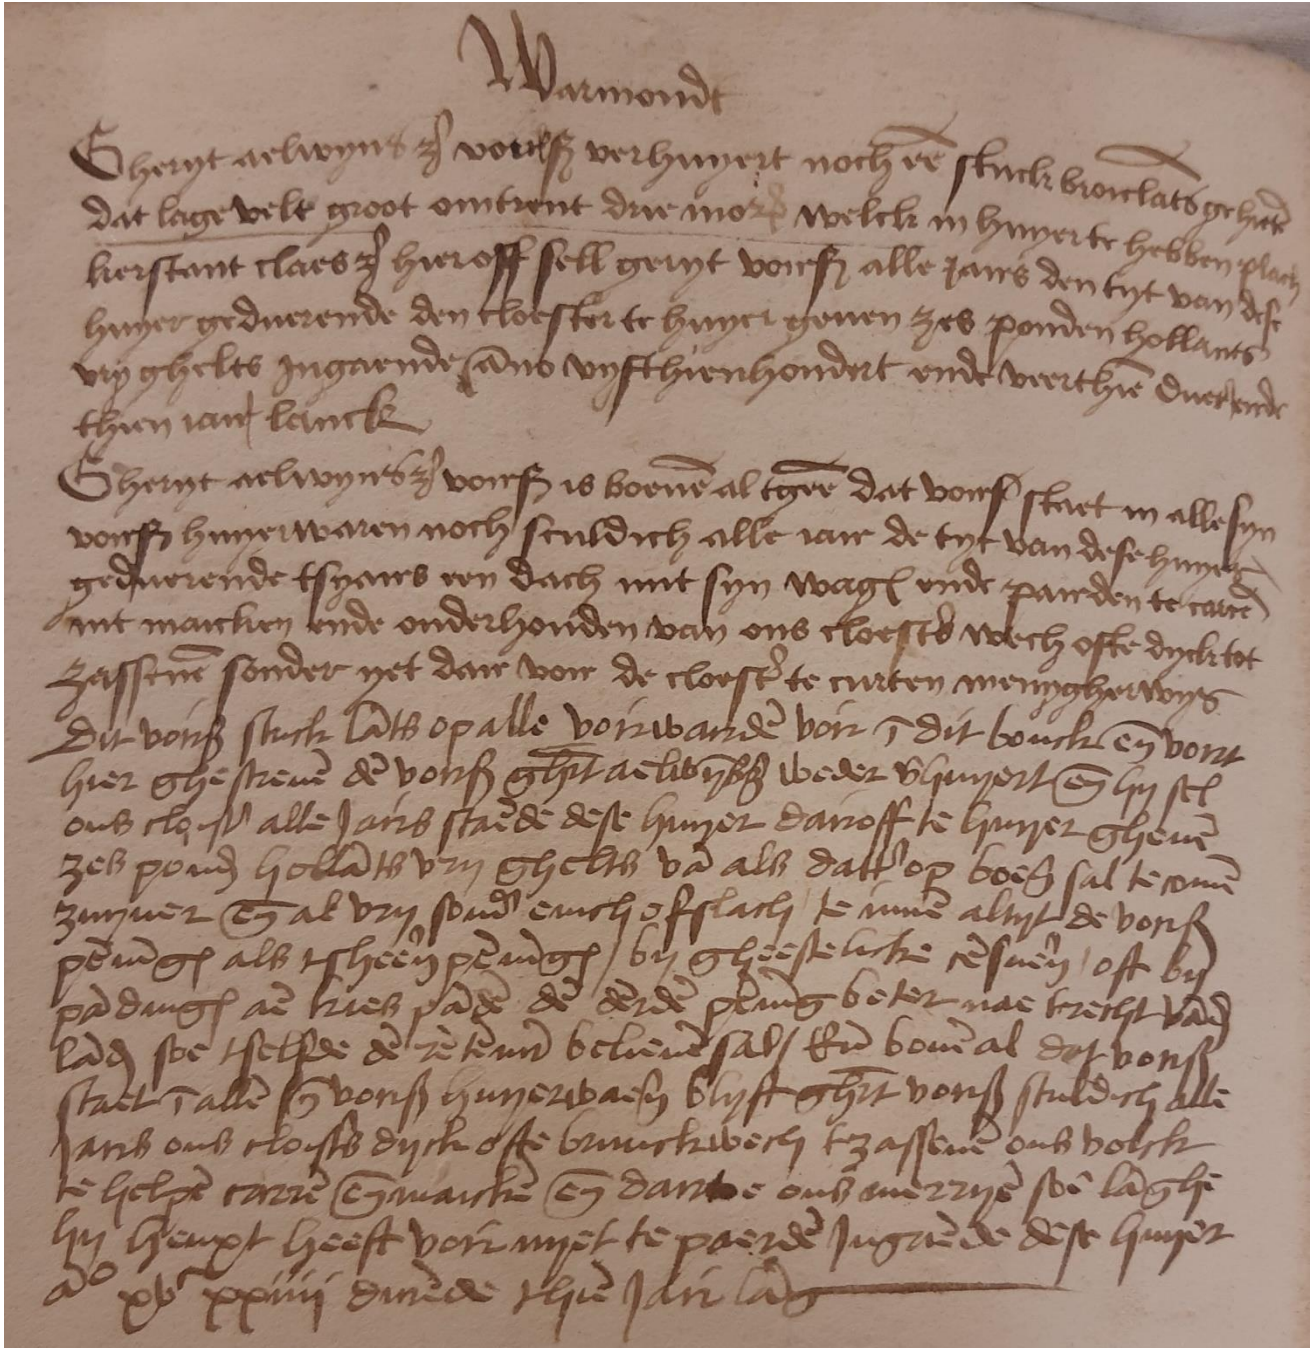 Warmondt
Gheryt aelwijns z voirs verhuyert noch ee stuck broiclats gehiete
dat lage velt groot omtrent drie morg welck in huyer te hebben plach
kerstant claes z hieroff sell geryt voirs alle jairs den tyt van dese
huyer geduerende den cloester te huyer geuen zes ponden hollants
vry ghelts Ingaende ano vyfthienhondert ende veerthie duerende
thien iair lanck
Gheryt aelwyns z voirs is boeue al tgee dat voirs staet in alle syn
voirs huyerwaren noch sculdich alle iair de tyt van dese huyer
geduerende tsyairs een dach mit syn wage ende pairden te carre
mit maicken ende onderhouden van ons cloesters wech ofte dyck tot
zassene sonder yet dair voir de cloester te curten menygherwys
Dit voirs stuck lats op alle voirwarde voir i dit bouck en voirt
hier ghescreue de voirs ghrt aelwyns weder vhuyert en hy sel
ons cloister alle Jairs staede dese huyer dairoff te huyer gheue
zes pond hollats vry ghelts va als datter op boe sal te come
zuyuer en al vry sonder enich ofslach te inne altyt de voirs
penige als tsheere penige by gheestelicke cesuere oft by
padinge ae kies pade de derde penig beter nae trecht vad
lad soe tselfde de retemr belieue sal En boue al dat voirs
staet i alle sy voirs huyerwaere blyft ghrt voirs sculdich alle
Jairs ons cloisters dyck ofte bruuckwech te zassene ons volck
te helpe carre en maicke en dairtoe ons meryen soe laghe
hy hengst heeft voir myet te paerde Ingaede dese huyer
ao xvc xxiiii durede thie Jair lag